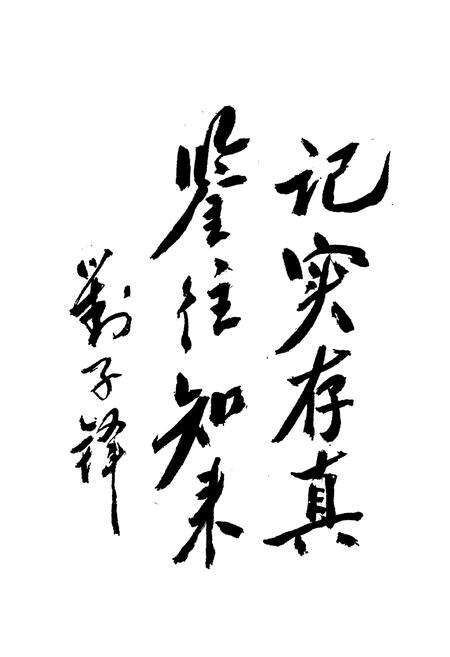 记实存真
鉴往知来
劉子锋